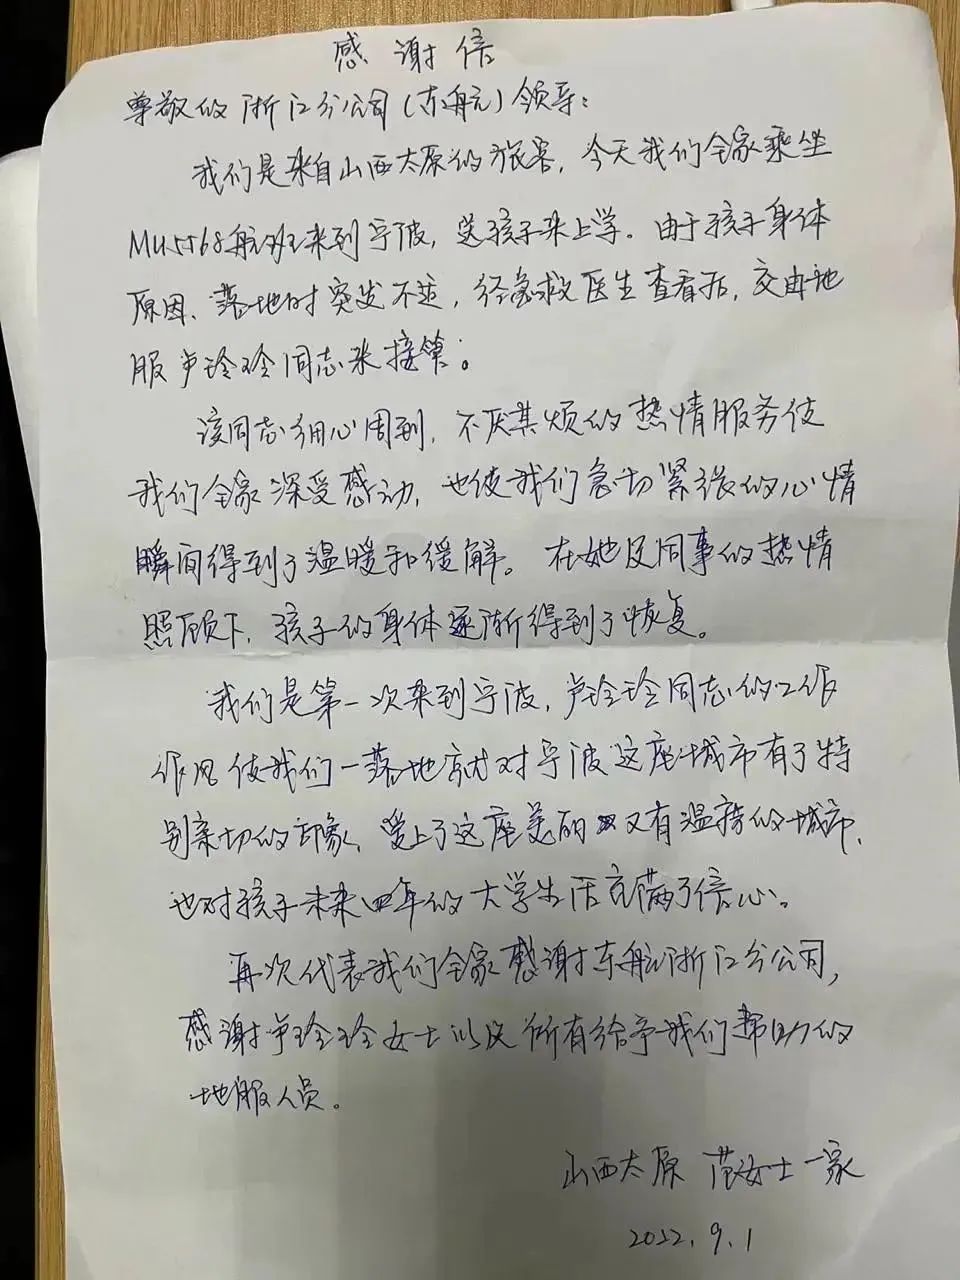 感谢信
尊敬的浙江分公司(东航)领导:
我们是来自山西太原的旅客,今天我们全家乘坐
MU5568航班来到宁波,送孩子来上学。由于孩子身体
原因、落地时突发不适,经急救医生查看后,交由地
服卢玲玲同志来接管。
该同志细心周到,不厌其烦的热情服务使
我们全家深受感动,也使我们急切紧张的心情
瞬间得到了温暖和缓解。在她及同事的热情
照顾下,孩子的身体逐渐得到了恢复。
我们是第一次来到宁波,卢玲玲同志的工作
作风使我们一落地就对宁波这座城市有了特
别亲切的印象,爱上了这座美丽又有温情的城市,
也对孩子未来四年的大学生活充满了信心。
再次代表我们全家感谢东航浙江分公司,
感谢卢玲玲女士以及所有给予我们帮助的
地服人员。
山西太原 范女士一家
2022.9.1